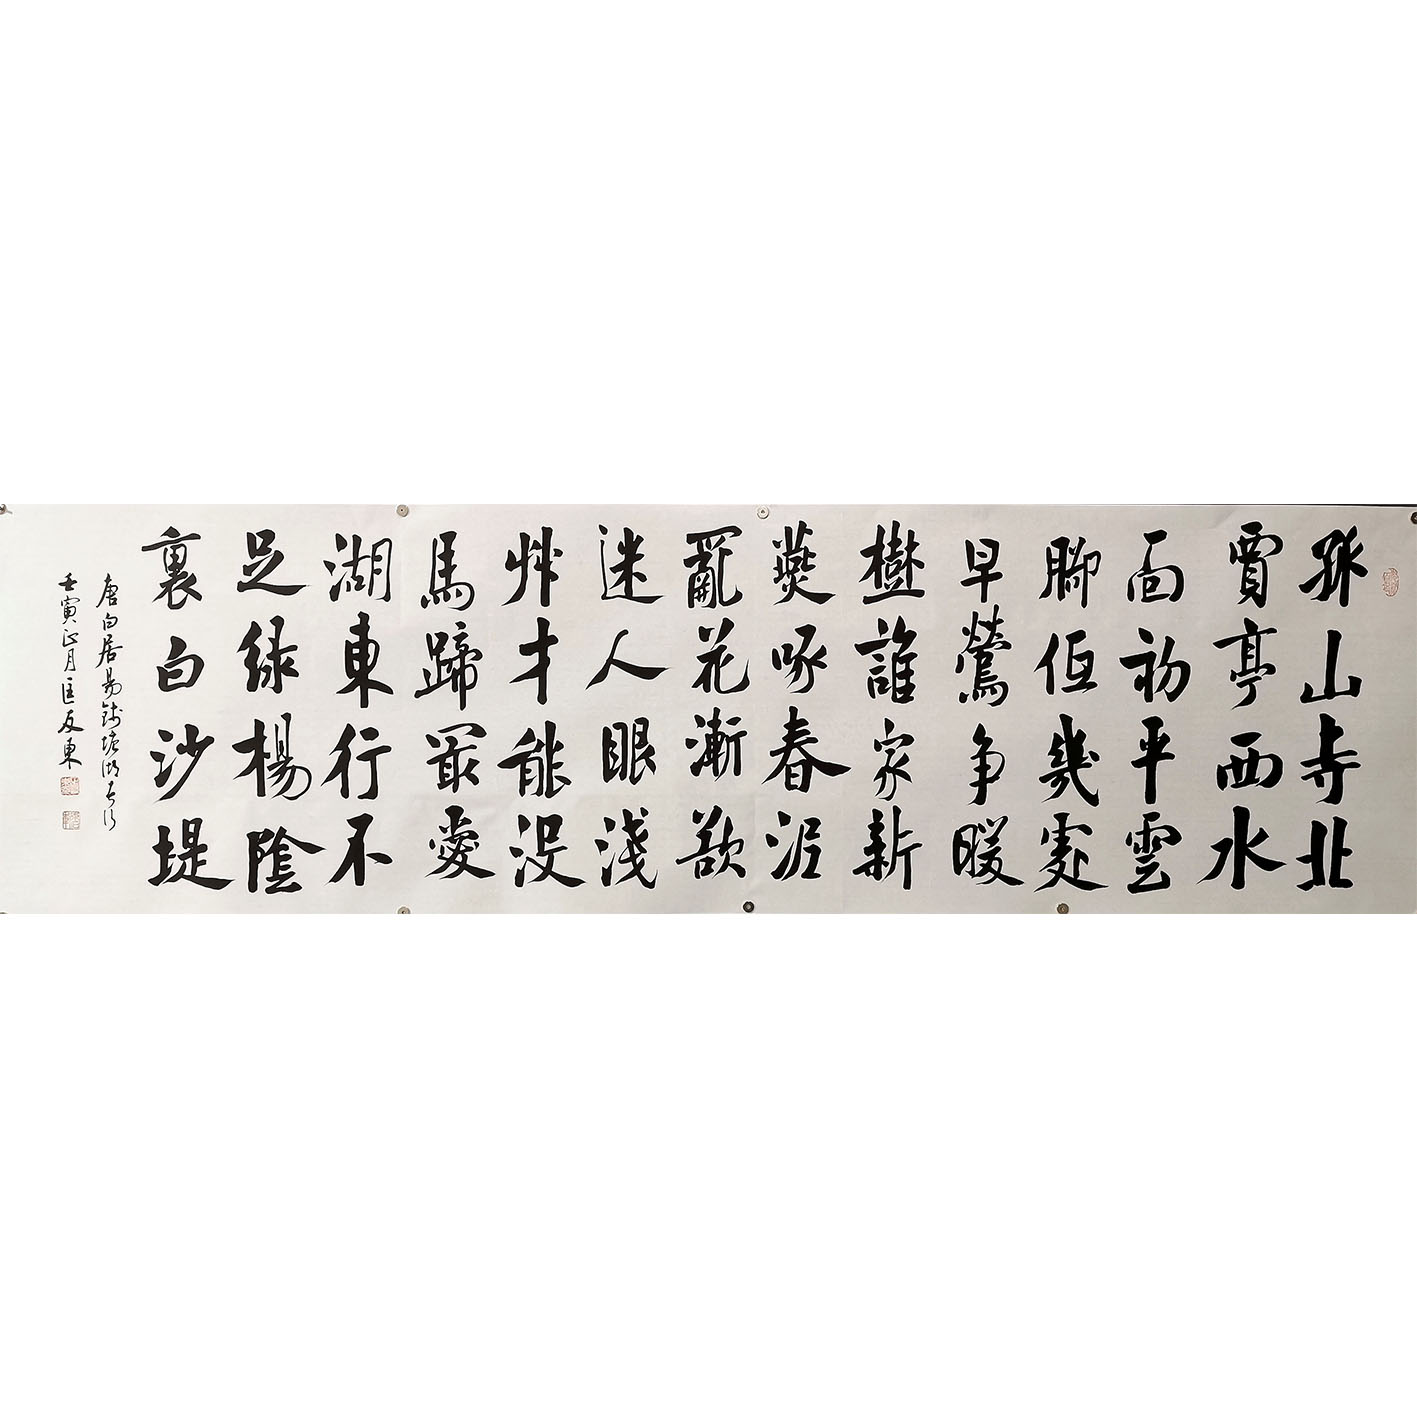 孤山寺北
賈亭西水
面初平雲
腳低幾處
早鶯争暖
樹誰家新
燕啄春泥
亂花漸欲
迷人眼淺
艸才能没
馬蹄最愛
湖東行不
足緑楊陰
裏白沙堤
唐白居易錢塘湖春行
壬寅正月匡友東